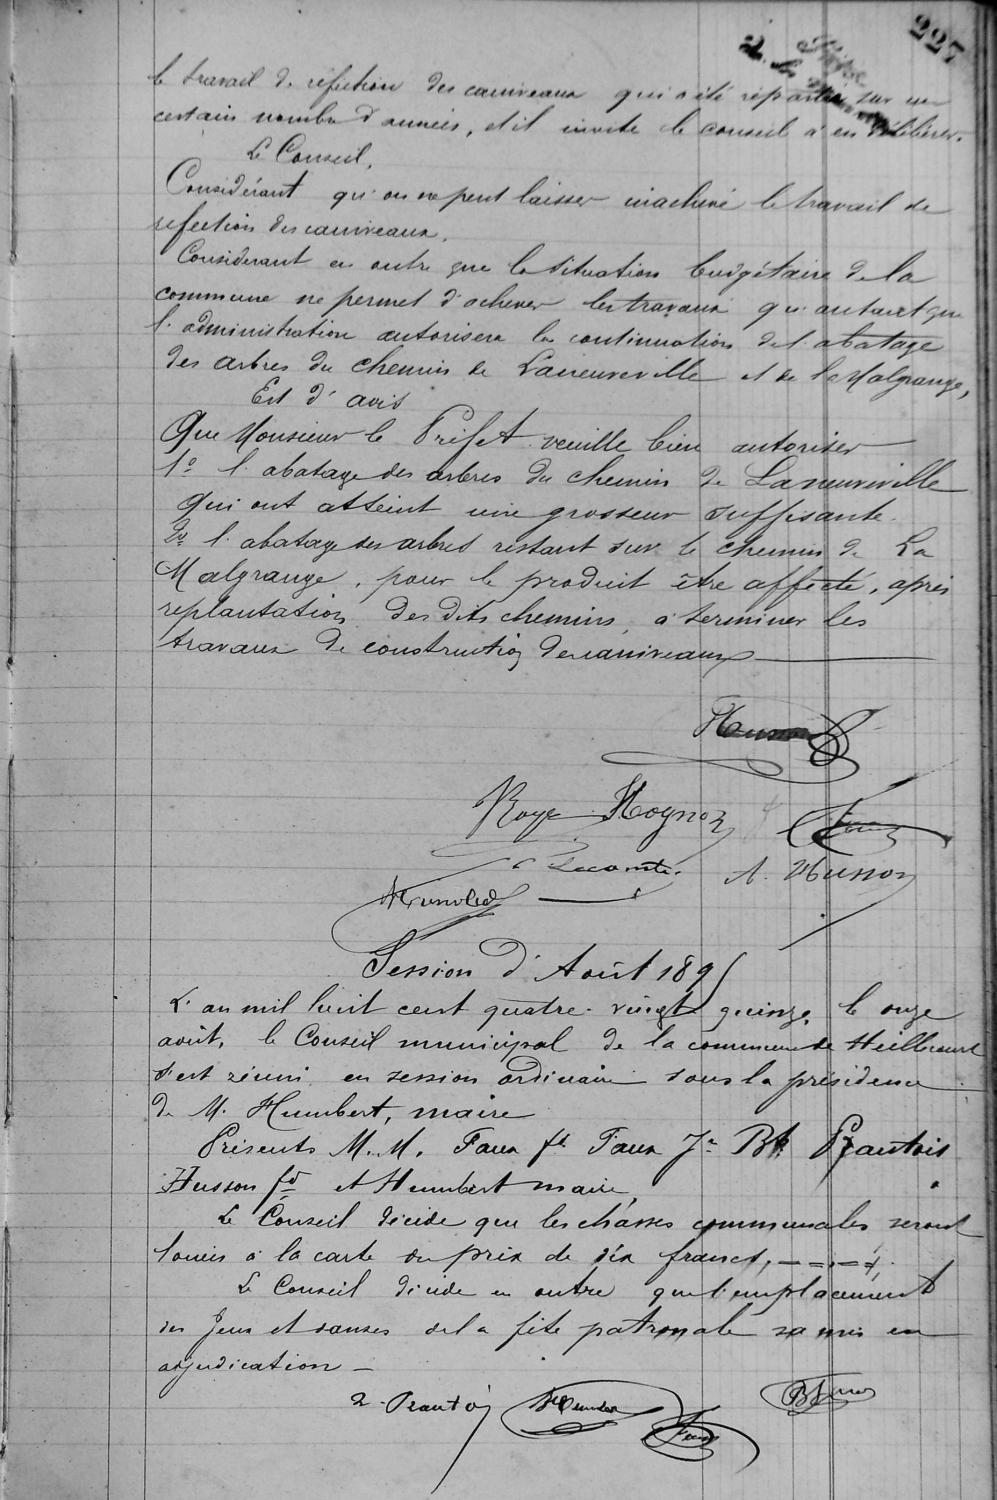 227
le travail de réfection des caniveaux qui a été réparti sur un
certain nombre d'années, et il invite le conseil à en délibérer.
Le Conseil,
Considérant qu'on ne peut laisser inachevé le travail de
refection des caniveaux,
Considerant en outre que la situation budgétaire de la
commune ne permet d'achever les travaux qu'autant que
l'administration autorisera la continuation de l'abatage
des arbres du chemin de Laneuveville et de la Malgrange,
Est d'avis
Que Monsieur le Préfet veuille bien autoriser
1º l'abatage des arbres du chemin de Laneuveville
qui ont atteint une grosseur suffisante.
2º l'abatage des arbres restant sur le chemin de La
Malgrange, pour le produit être affecté, après
replantation des dits chemins, à terminer les
travaux de construction de caniveaux
Husson
Roye Hognon
Lecomte A. Husson
Session d'Août 1895
L'an mil huit cent quatre-vingt quinze, le onze
août, le Conseil municipal de la commune de Heillecourt
s'est réuni en session ordinaire sous la présidence
de M. Humbert, maire
Présents M.M. Faux ft Faux Je Bte Prautois
Husson fd et Humbert maire,
Le Conseil décide que les chasses communales seront
louées à la carte au prix de dix francs,
Le Conseil décide en outre que l'emplacement
des Jeux et danses de la fête patronale sera mis en
adjudication
Prautois Humbert